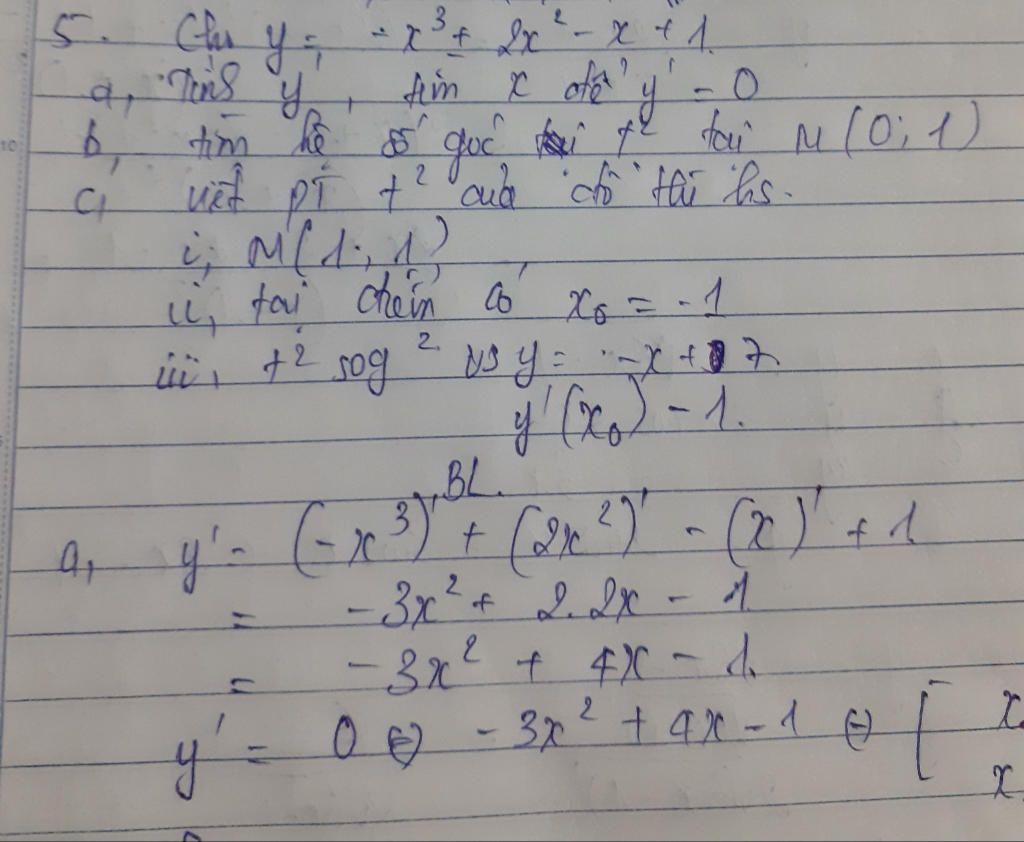 5. Cho y = -x³ + 2x² - x + 1.
a, Tính y', tìm x để y' = 0
b, tìm hệ số góc t² tại M(0; 1)
c, viết PT t² của đồ thị hs.
i, M(1; 1)
ii, tại điểm có x₀ = -1
iii, t² sog² vs y = -x + 7.
y'(x₀) - 1.
BL.
a, y' = (-x³)' + (2x²)' - (x)' + 1
= -3x² + 2.2x - 1
= -3x² + 4x - 1.
y' = 0 ⇔ -3x² + 4x - 1 ⇔ [ x
x